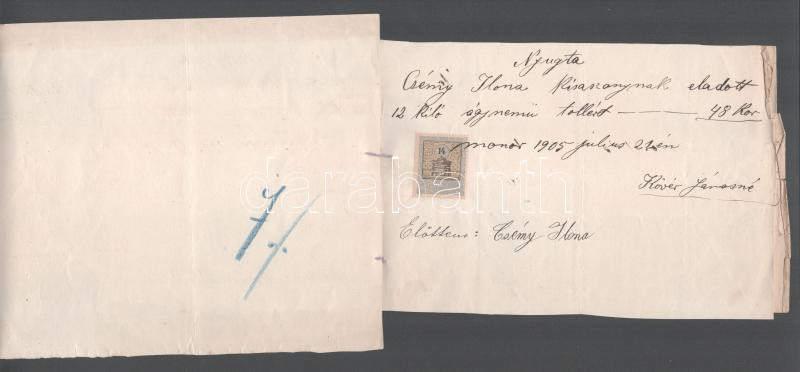 Nyugta
Csémy Ilona kisaszonynak eladott
12 kiló ágynemü tollért — 48 Kor
monor 1905 julius 21én
Kövér Jánosné
Előttem: Csémy Ilona
14
7/.
darabanth